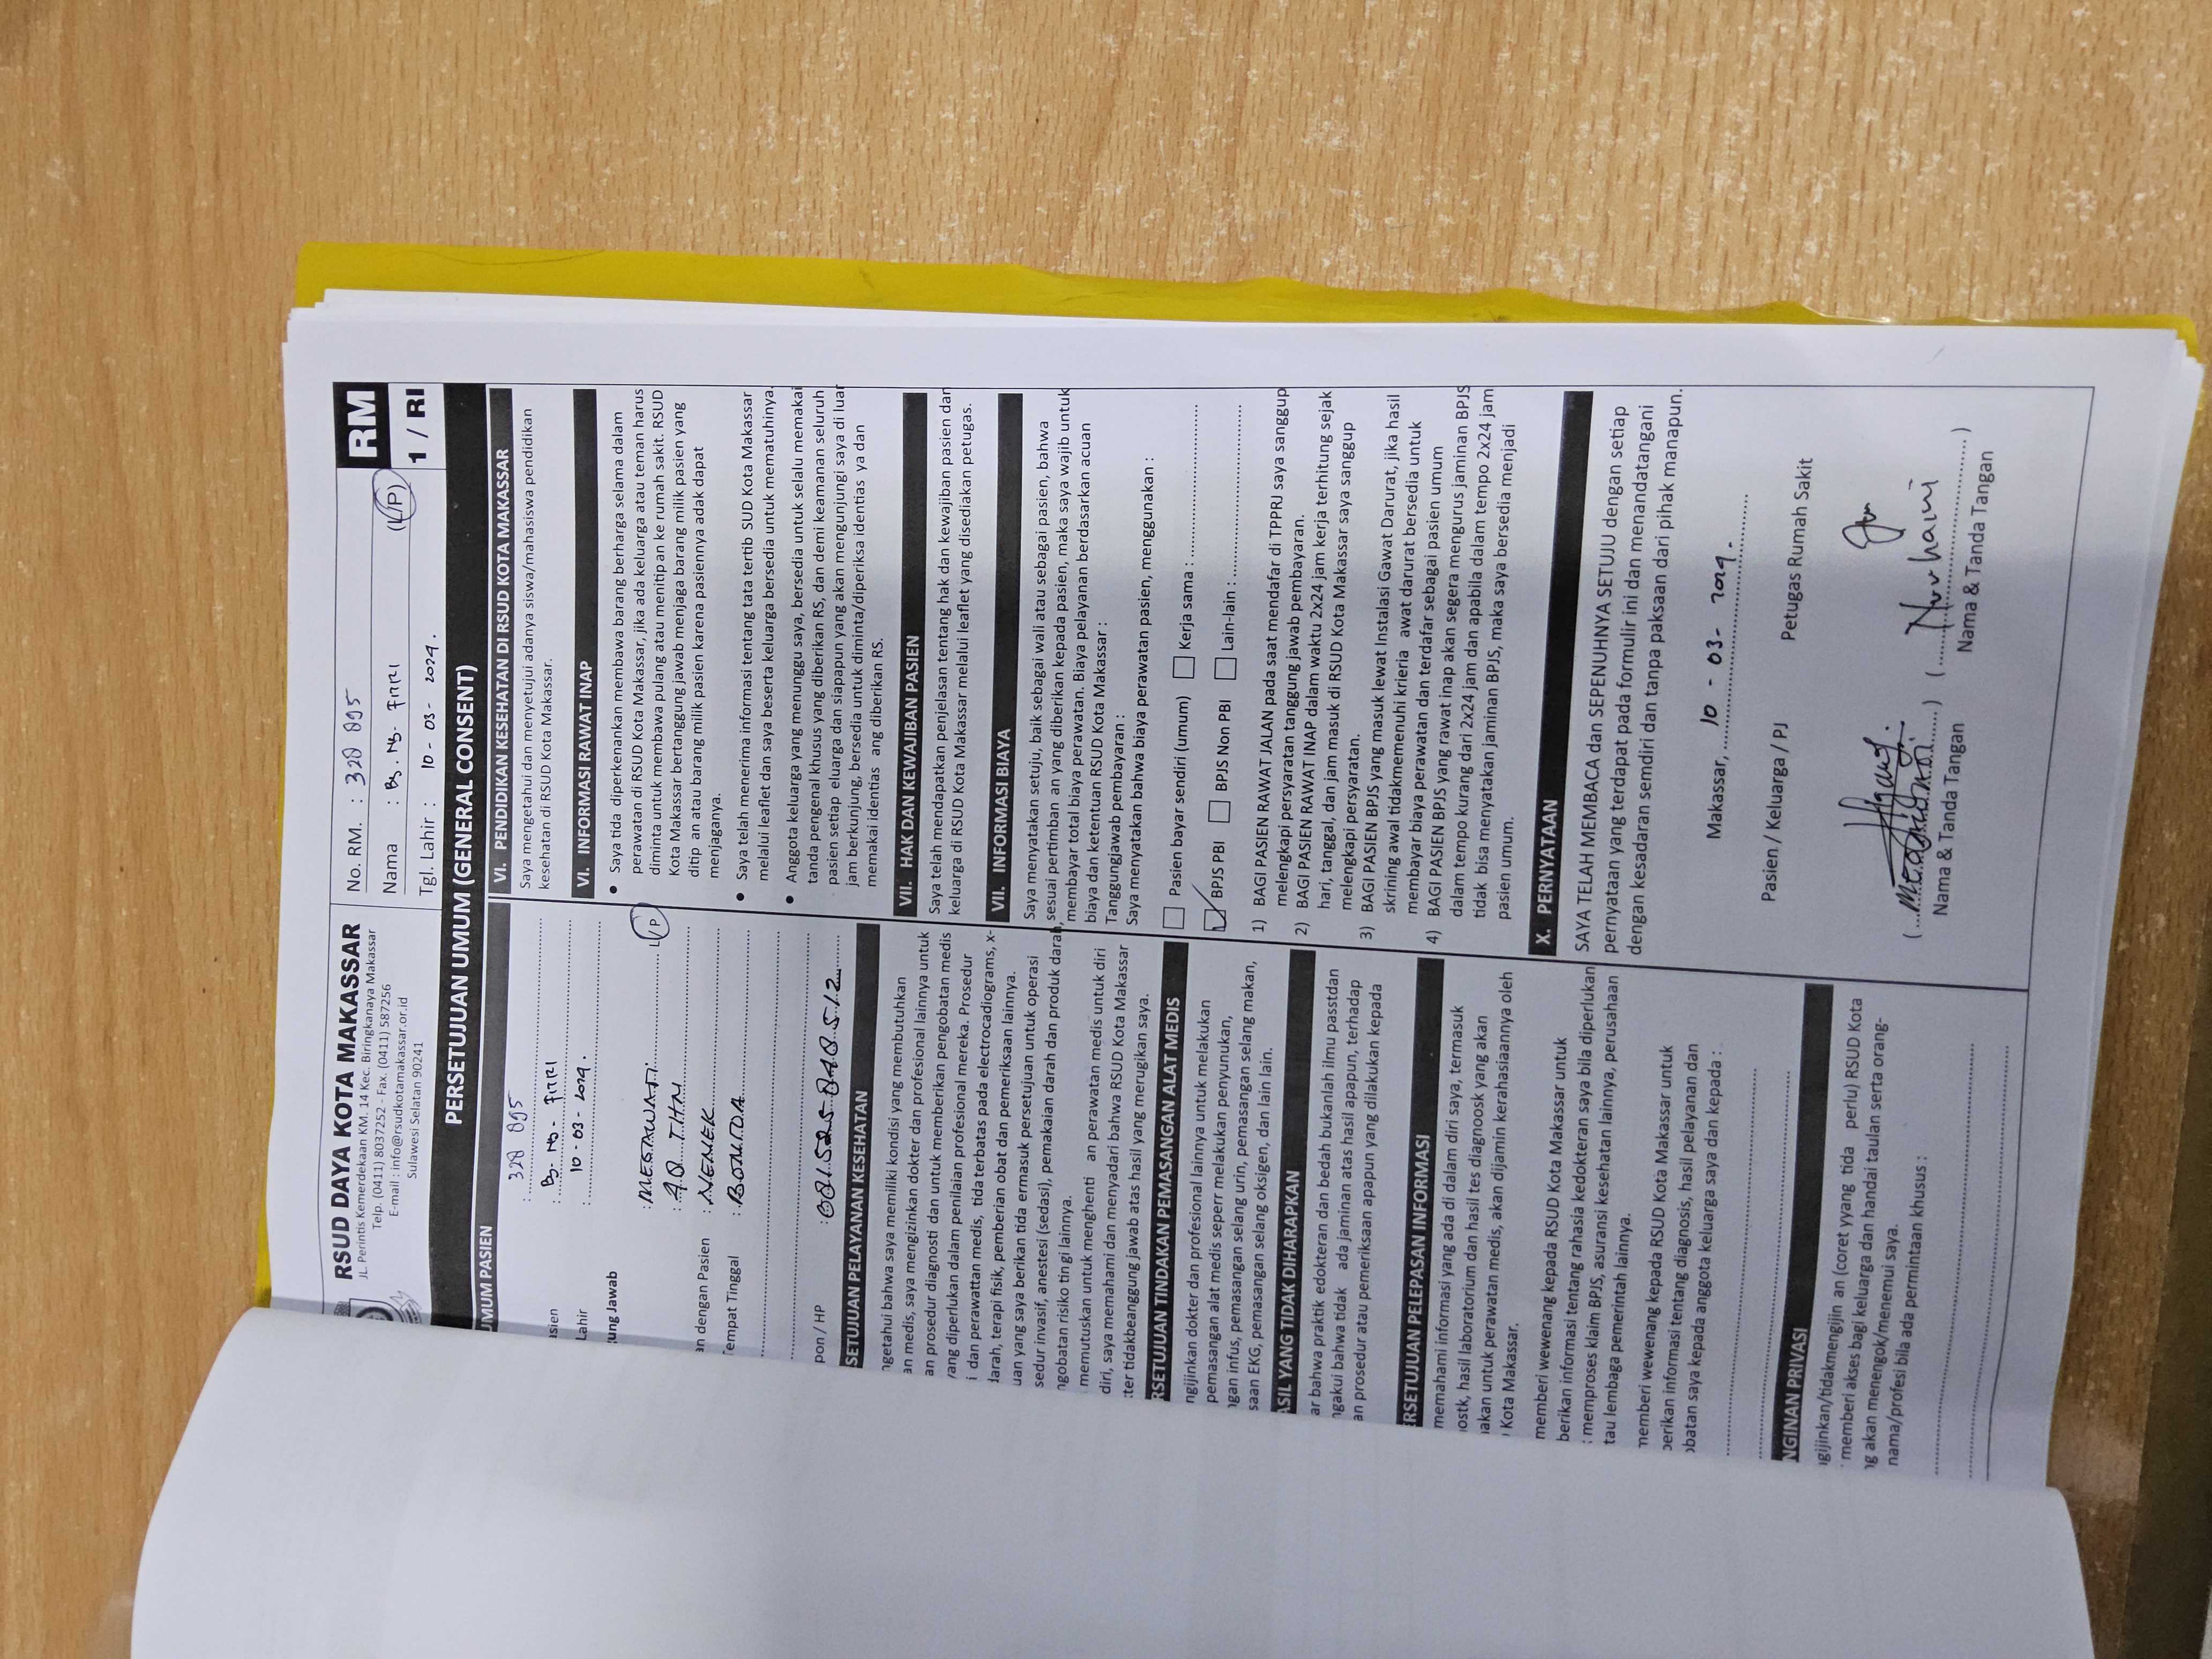 RSUD DAYA KOTA MAKASSAR
JL. Perintis Kemerdekaan KM. 14 Kec. Biringkanaya Makassar
Telp. (0411) 8037252 - Fax. (0411) 587256
E-mail : info@rsudkotamakassar.or.id
Sulawesi Selatan 90241
No. RM. : 328 895
Nama : By. Ny. FITRI (L/P)
Tgl. Lahir : 10 - 03 - 2024.
RM
1 / RI
PERSETUJUAN UMUM (GENERAL CONSENT)
UMUM PASIEN
: 328 895
asien : By. Ny. FITRI
Lahir : 10 - 03 - 2024.
ung Jawab
: MEGAWATI L/P
: 48 THN
an dengan Pasien : NENEK
Tempat Tinggal :
pon / HP : 081525848512
SETUJUAN PELAYANAN KESEHATAN
ngetahui bahwa saya memiliki kondisi yang membutuhkan
an medis, saya mengizinkan dokter dan profesional lainnya untuk
an prosedur diagnosti dan untuk memberikan pengobatan medis
yang diperlukan dalam penilaian profesional mereka. Prosedur
i dan perawattan medis, tida terbatas pada electrocadiograms, x-
darah, terapi fisik, pemberian obat dan pemeriksaan lainnya.
uan yang saya berikan tida ermasuk persetujuan untuk operasi
sedur invasif, anestesi (sedasi), pemakaian darah dan produk darah,
ngobatan risiko tin gi lainnya.
memutuskan untuk menghenti an perawatan medis untuk diri
diri, saya memahami dan menyadari bahwa RSUD Kota Makassar
ter tidakbeanggung jawab atas hasil yang merugikan saya.
RSETUJUAN TINDAKAN PEMASANGAN ALAT MEDIS
ngijinkan dokter dan profesional lainnya untuk melakukan
pemasangan alat medis seperr melakukan penyunukan,
ngan infus, pemasangan selang urin, pemasangan selang makan,
saan EKG, pemasangan selang oksigen, dan lain lain.
ASIL YANG TIDAK DIHARAPKAN
ar bahwa praktik edokteran dan bedah bukanlah ilmu passtdan
ngakui bahwa tidak ada jaminan atas hasil apapun, terhadap
an prosedur atau pemeriksaan apapun yang dilakukan kepada
ERSETUJUAN PELEPASAN INFORMASI
memahami informasi yang ada di dalam diri saya, termasuk
nostk, hasil laboratorium dan hasil tes diagnoosk yang akan
nakan untuk perawatan medis, akan dijamin kerahasiaannya oleh
Kota Makassar.
memberi wewenang kepada RSUD Kota Makassar untuk
berikan informasi tentang rahasia kedokteran saya bila diperlukan
: memproses klaim BPJS, asuransi kesehatan lainnya, perusahaan
tau lembaga pemerintah lainnya.
memberi wewenang kepada RSUD Kota Makassar untuk
berikan informasi tentang diagnosis, hasil pelayanan dan
obatan saya kepada anggota keluarga saya dan kepada :
NGINAN PRIVASI
ngijinkan/tidakmengijin an (coret yyang tida perlu) RSUD Kota
memberi akses bagi keluarga dan handai taulan serta orang-
ng akan menengok/menemui saya.
nama/profesi bila ada permintaan khusus :
VI. PENDIDIKAN KESEHATAN DI RSUD KOTA MAKASSAR
Saya mengetahui dan menyetujui adanya siswa/mahasiswa pendidikan
kesehatan di RSUD Kota Makassar.
VI. INFORMASI RAWAT INAP
• Saya tida diperkenankan membawa barang berharga selama dalam
perawatan di RSUD Kota Makassar, jika ada keluarga atau teman harus
diminta untuk membawa pulang atau menitip an ke rumah sakit. RSUD
Kota Makassar bertanggung jawab menjaga barang milik pasien yang
ditip an atau barang milik pasien karena pasiennya adak dapat
menjaganya.
• Saya telah menerima informasi tentang tata tertib SUD Kota Makassar
melalui leaflet dan saya beserta keluarga bersedia untuk mematuhinya.
• Anggota keluarga yang menunggu saya, bersedia untuk selalu memakai
tanda pengenal khusus yang diberikan RS, dan demi keamanan seluruh
pasien setiap eluarga dan siapapun yang akan mengunjungi saya di luar
jam berkunjung, bersedia untuk diminta/diperiksa identias ya dan
memakai identias ang diberikan RS.
VII. HAK DAN KEWAJIBAN PASIEN
Saya telah mendapatkan penjelasan tentang hak dan kewajiban pasien dan
keluarga di RSUD Kota Makassar melalui leaflet yang disediakan petugas.
VII. INFORMASI BIAYA
Saya menyatakan setuju, baik sebagai wali atau sebagai pasien, bahwa
sesuai pertimban an yang diberikan kepada pasien, maka saya wajib untuk
membayar total biaya perawatan. Biaya pelayanan berdasarkan acuan
biaya dan ketentuan RSUD Kota Makassar :
Tanggungjawab pembayaran :
Saya menyatakan bahwa biaya perawatan pasien, menggunakan :
Pasien bayar sendiri (umum) Kerja sama :
BPJS PBI BPJS Non PBI Lain-lain :
1) BAGI PASIEN RAWAT JALAN pada saat mendafar di TPPRJ saya sanggup
melengkapi persyaratan tanggung jawab pembayaran.
2) BAGI PASIEN RAWAT INAP dalam waktu 2x24 jam kerja terhitung sejak
hari, tanggal, dan jam masuk di RSUD Kota Makassar saya sanggup
melengkapi persyaratan.
3) BAGI PASIEN BPJS yang masuk lewat Instalasi Gawat Darurat, jika hasil
skrining awal tidakmemenuhi krieria awat darurat bersedia untuk
membayar biaya perawatan dan terdafar sebagai pasien umum
4) BAGI PASIEN BPJS yang rawat inap akan segera mengurus jaminan BPJS
dalam tempo kurang dari 2x24 jam dan apabila dalam tempo 2x24 jam
tidak bisa menyatakan jaminan BPJS, maka saya bersedia menjadi
pasien umum.
X. PERNYATAAN
SAYA TELAH MEMBACA dan SEPENUHNYA SETUJU dengan setiap
pernyataan yang terdapat pada formulir ini dan menandatangani
dengan kesadaran semdiri dan tanpa paksaan dari pihak manapun.
Makassar, 10 - 03 - 2024.
Pasien / Keluarga / PJ Petugas Rumah Sakit
( MEGAWATI ) ( Nurhaini )
Nama & Tanda Tangan Nama & Tanda Tangan